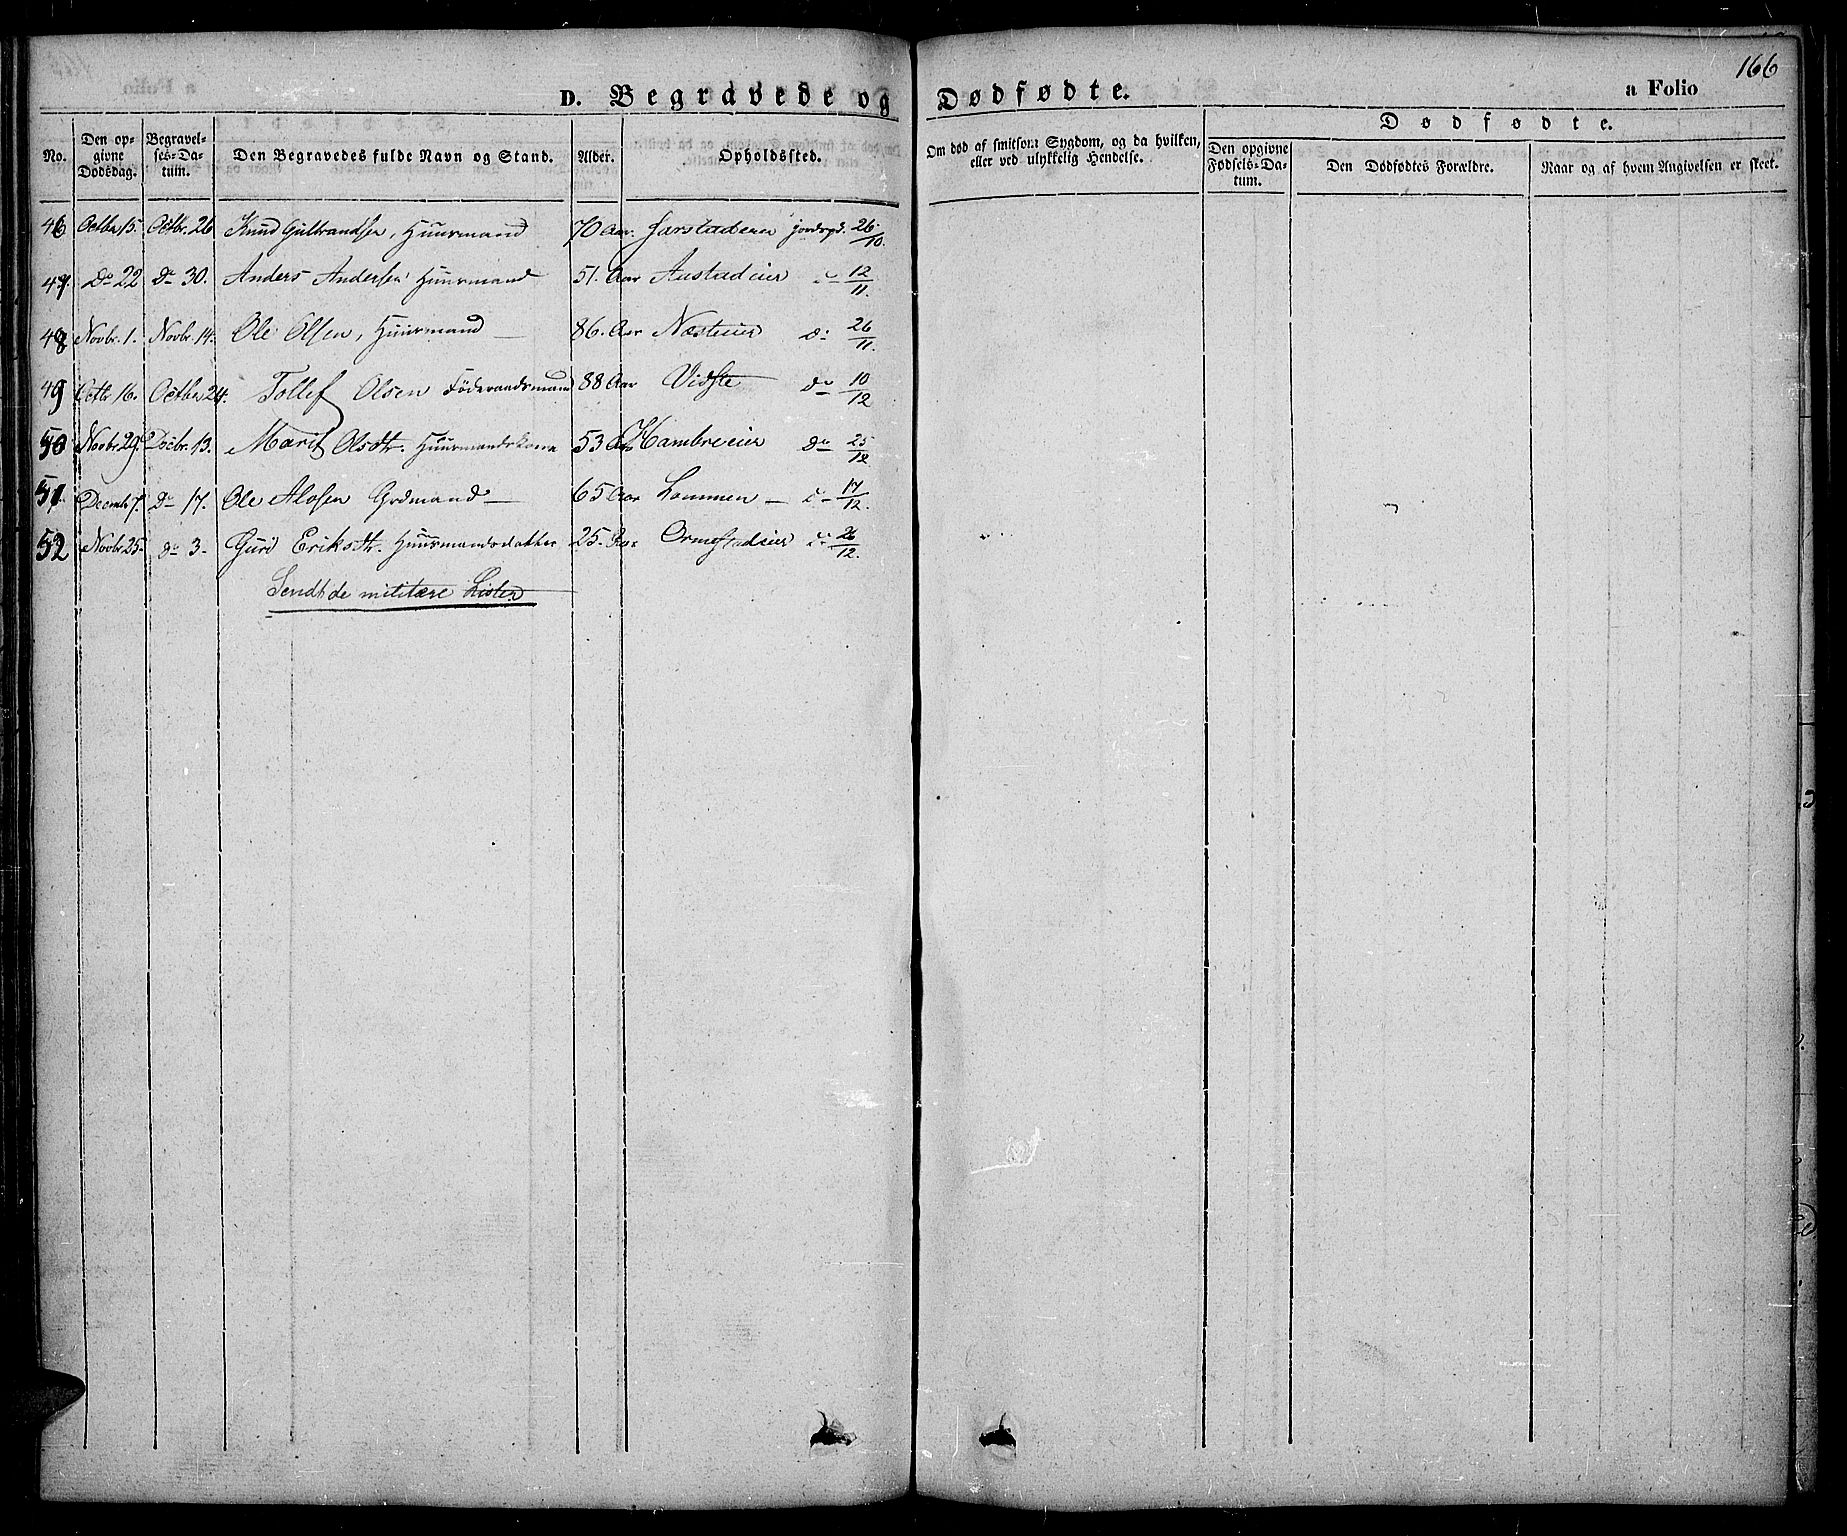 166
D. Begravede og Dødfødte. a Folio
Dødfødte.
No. Den op- givne Dødsdag. Begravel- ses-Da- tum. Den Begravedes fulde Navn og Stand. Alder. Opholdssted. Om død af smitsom Sygdom, og da hvilken, eller ved ulykkelig Hendelse. Den opgivne Fødsels-Da- tum. Den Dødfødtes Forældre. Naar og af hvem Angivelsen er skeet.
46 Octbr 15. Octbr. 26 Knud Gulbrandsen, Huusmand 70 Aar. Jarstadeier jordsps. 26/10.
47. Do 22 Do 30. Anders Andersen Huusmand 51. Aar Aastadeier do 12/11.
48 Novbr. 1. Novbr. 14. Ole Olsen, Huusmand 86. Aar Næsteier do 26/11.
49 Octbr 16. Octbr 24. Tollef Olsen Föderaadsmand 88 Aar Vidste do 10/12
50 Novbr 29. Decbr. 13. Marit Olsdtr. Huusmandskone 53 Aar Hambreeier do 25/12
51. Decembr 7. Do 17. Ole Alosen Godmand 65 Aar Lommen do 17/12.
52 Novbr 25. do 3. Guri Eriksdtr. Huusmandsdatter 25. Aar Ormestadeier do 26/12.
Sendt de militære Lister